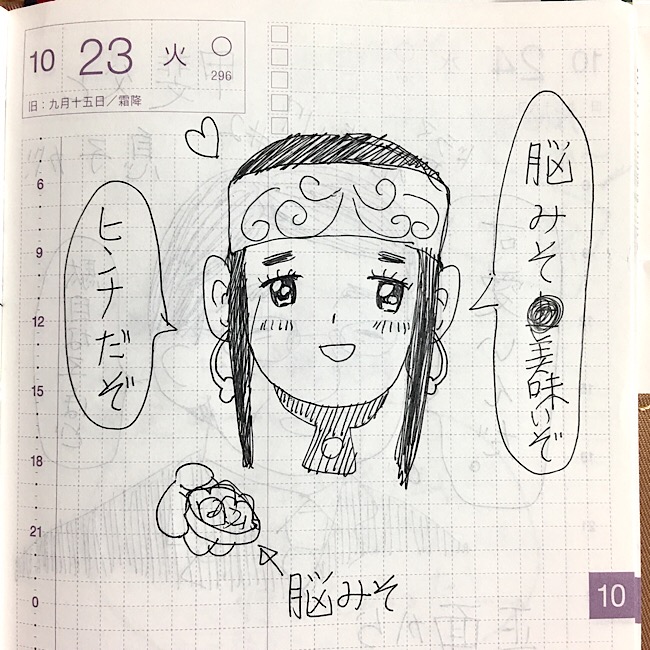 10 23 火 ○
296
旧：九月十五日／霜降
脳みそ美味いぞ
ヒンナだぞ
6
9
12
15
18
21
0
脳みそ
10